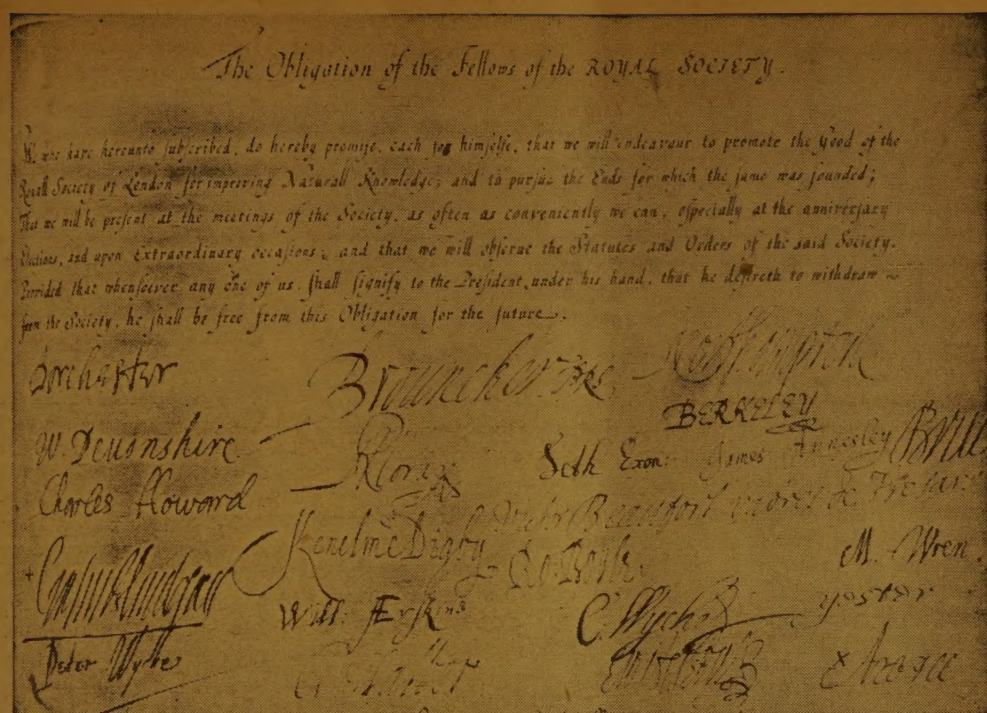 The Obligation of the Fellows of the ROYAL SOCIETY.
We who have hereunto subscribed, do hereby promise, each for himselfe, that we will endeavour to promote the Good of the
Royall Society of London for improving Naturall Knowledge, and to pursue the Ends for which the same was founded;
That we will be present at the meetings of the Society, as often as conveniently we can, especially at the anniversary
Elections, and upon Extraordinary occasions; and that we will observe the Statutes and Orders of the said Society.
Provided that whensoever any one of us shall signify to the President under his hand, that he desireth to withdraw
from the Society, he shall be free from this Obligation for the future.
Dorchester Brouncker Northampton
BERKELEY
W. Devonshire Seth Exon: James Annesley
Charles Howard Beaufort
Kenelme Digby Ro. Boyle M. Wren
Will: Erskine C. Wyche Yester
Peter Wyche